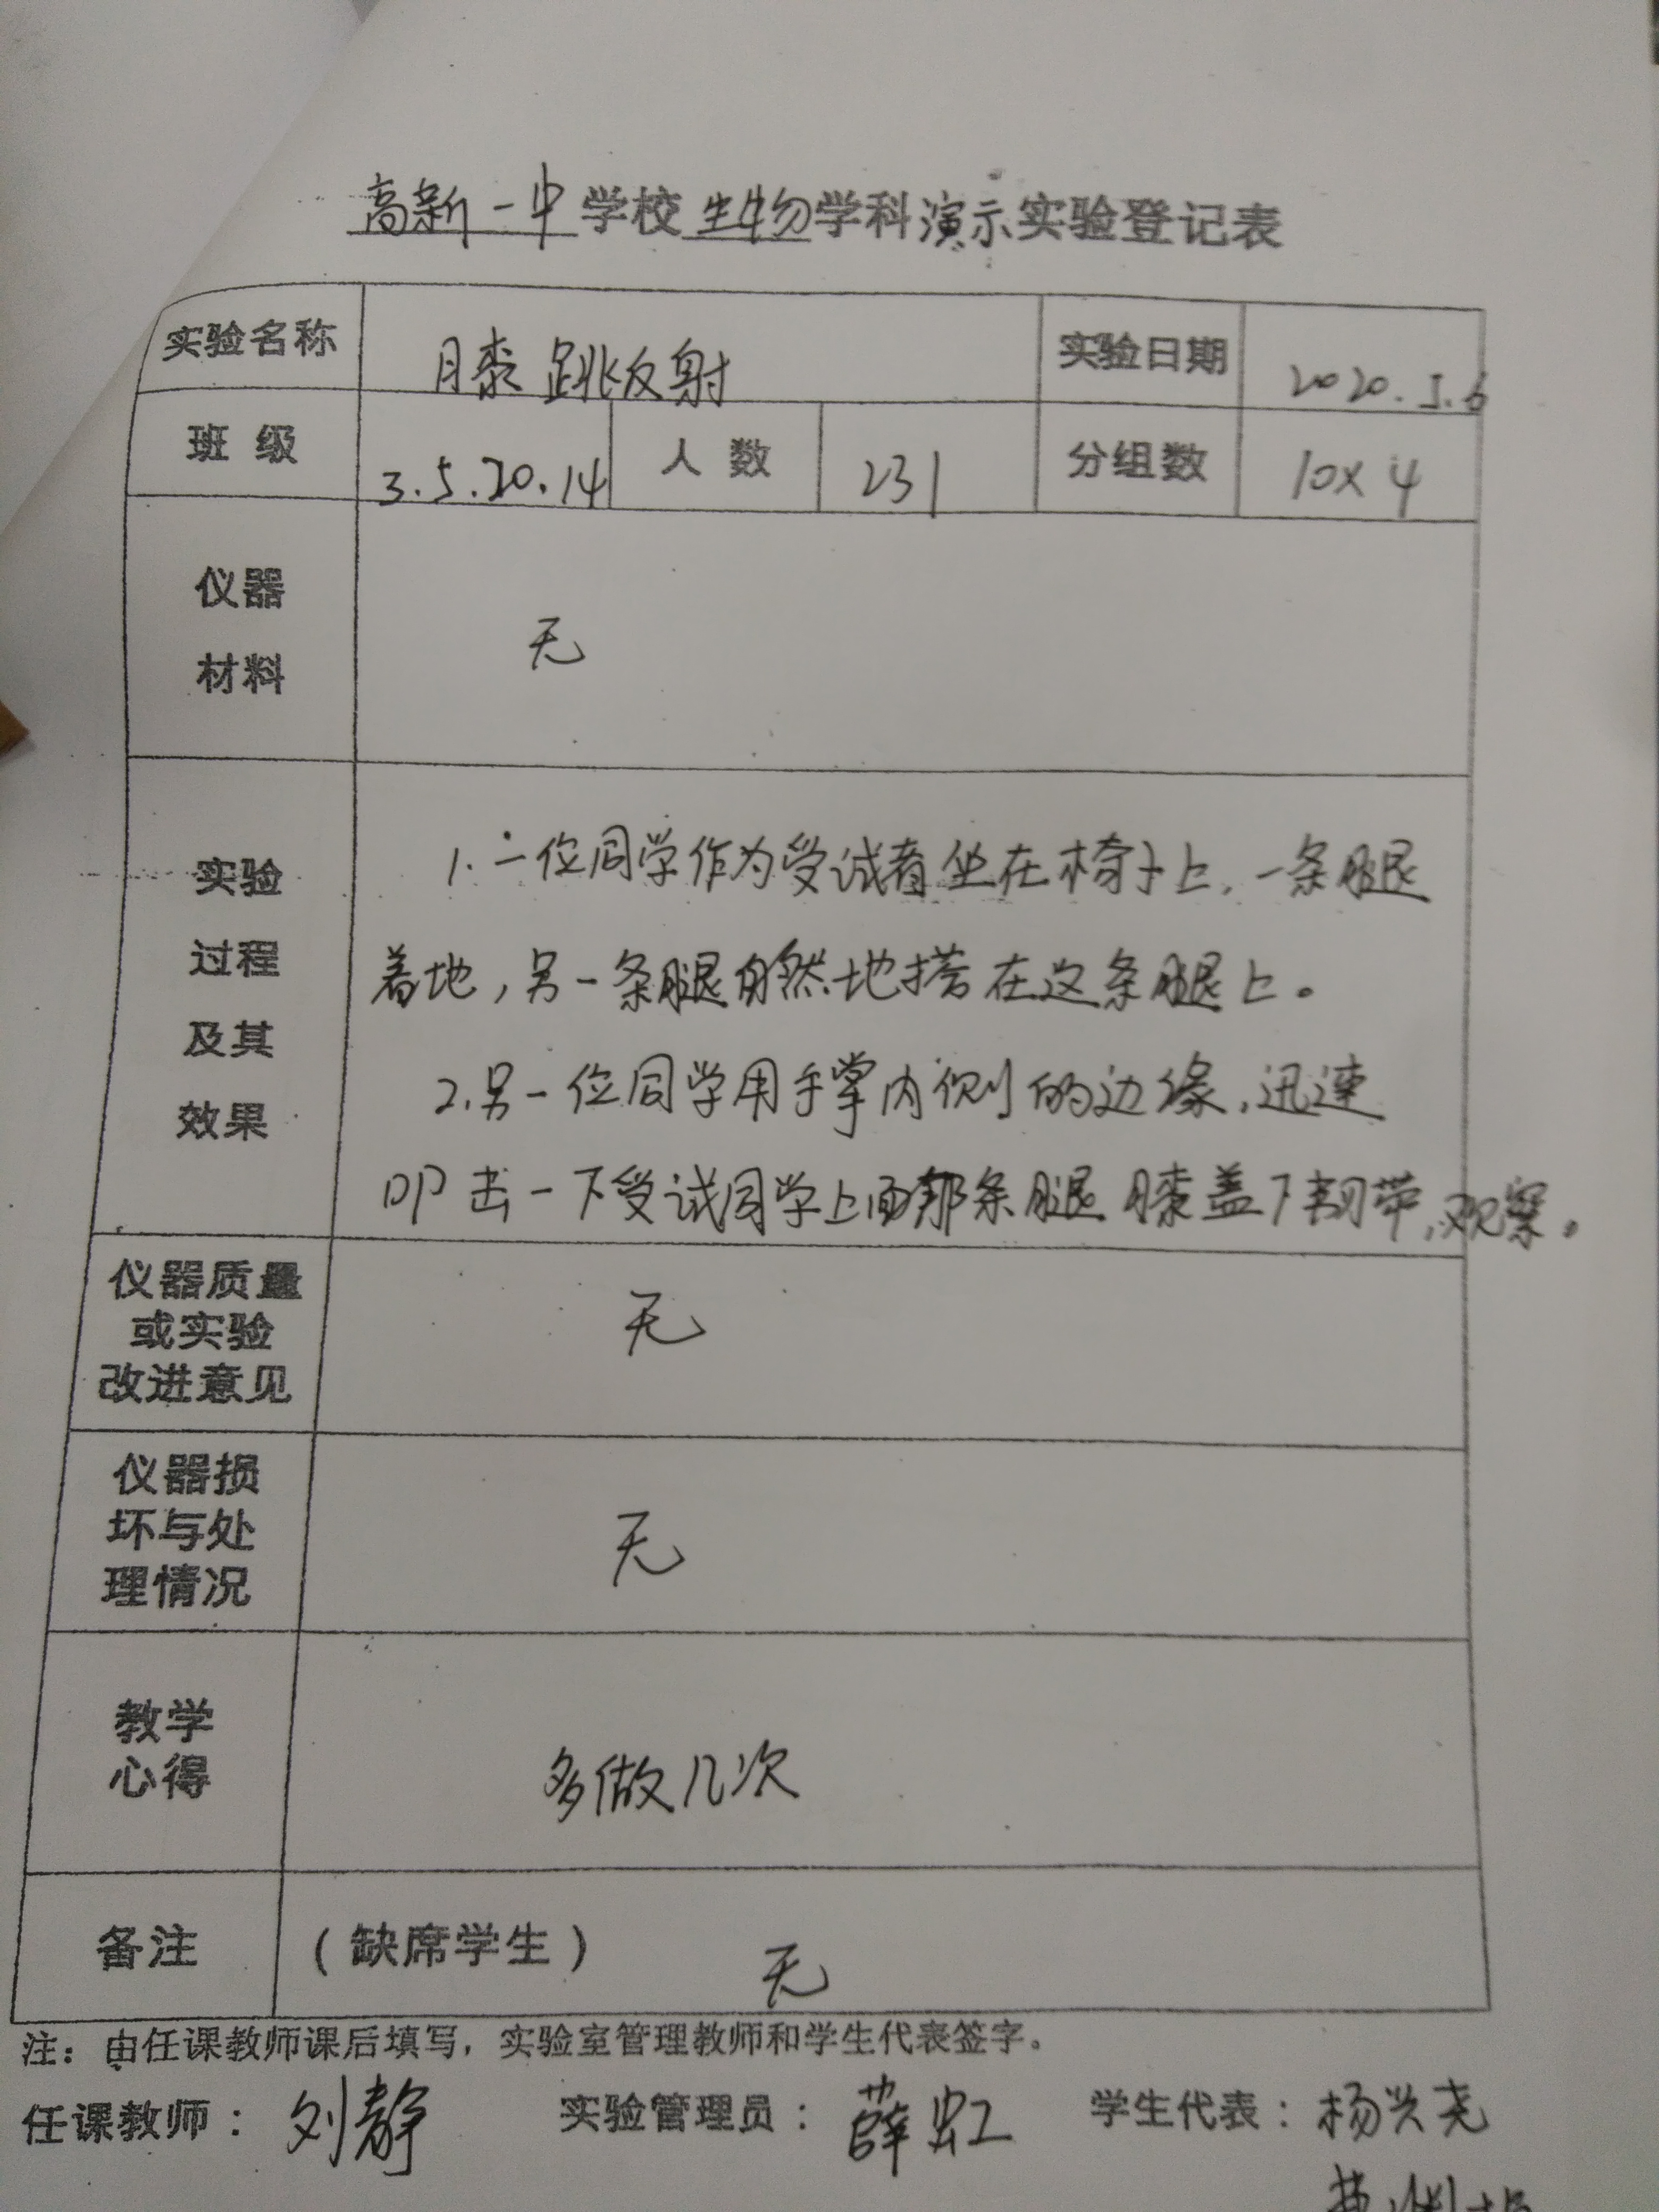 高新一中学校生物学科演示实验登记表
实验名称 膝跳反射 实验日期 2020.5.6
班 级 3.5.20.14 人 数 231 分组数 10×4
仪器
材料
无
实验
过程
及其
效果
1.一位同学作为受试者坐在椅子上,一条腿
着地,另一条腿自然地搭在这条腿上。
2.另一位同学用手掌内侧的边缘,迅速
叩击一下受试同学上面那条腿膝盖下韧带,观察。
仪器质量
或实验
改进意见
无
仪器损
坏与处
理情况
无
教学
心得
多做几次
备注 (缺席学生) 无
注:由任课教师课后填写,实验室管理教师和学生代表签字。
任课教师:刘静 实验管理员:薛虹 学生代表:杨兴尧